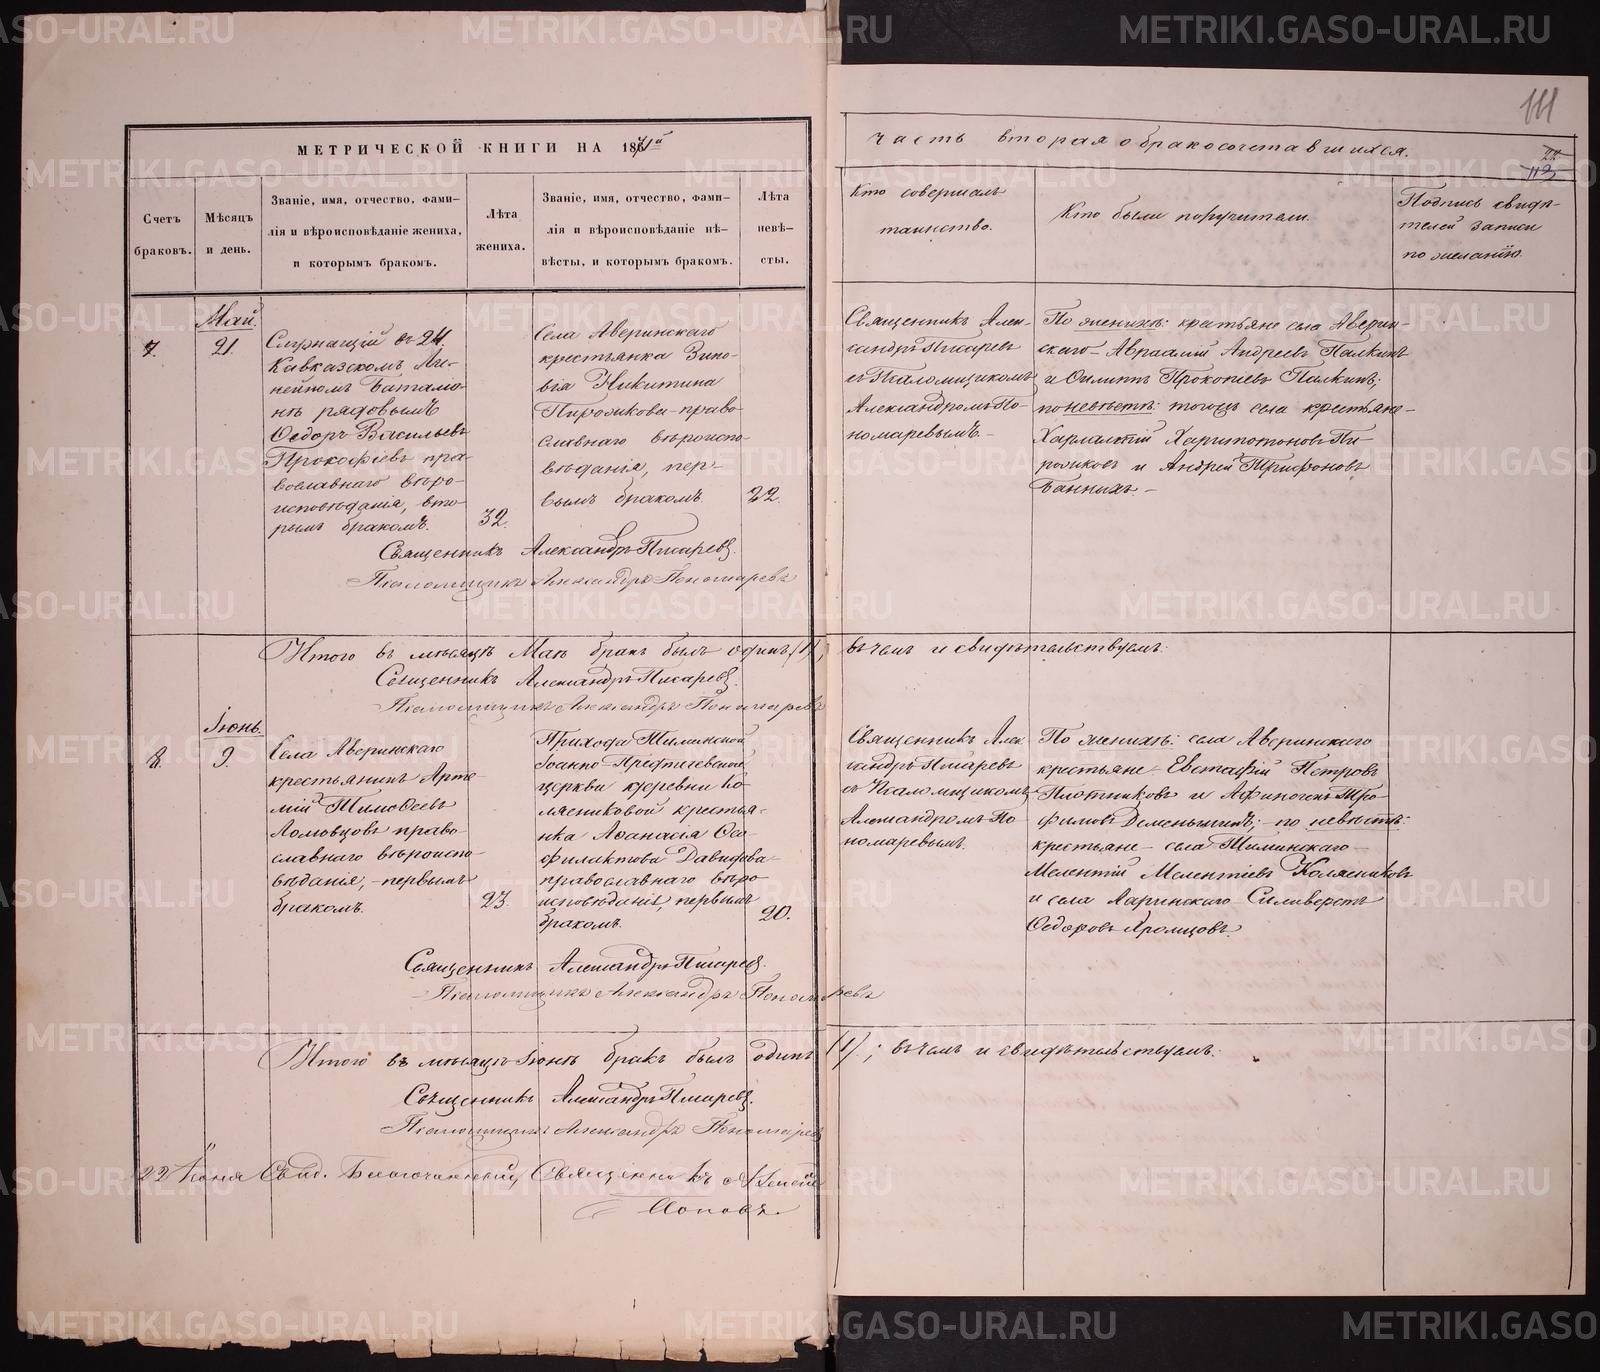 МЕТРИЧЕСКОЙ КНИГИ НА 1871й
часть вторая о бракосочетавшихся.
111
22
113
Счетъ
браковъ.
Мѣсяцъ
и день.
Званіе, имя, отчество, фами-
лія и вѣроисповѣданіе жениха,
и которымъ бракомъ.
Лѣта
жениха.
Званіе, имя, отчество, фами-
лія и вѣроисповѣданіе не-
вѣсты, и которымъ бракомъ.
Лѣта
невѣ-
сты.
Кто совершалъ
таинство.
Кто были поручители.
Подпись свидѣ-
телей записи
по желанію.
7.
Май.
21.
Служащій въ 24.
Кавказскомъ Ли-
нейномъ Баталіо-
нѣ рядовымъ
Ѳедоръ Васильевъ
Прокофіевъ пра-
вославнаго вѣро-
исповѣданія, вто-
рымъ бракомъ.
32.
Села Аверинскаго
крестьянка Зино-
вія Никитина
Пирожкова право-
славнаго вѣроиспо-
вѣданія, пер-
вымъ бракомъ.
22.
Священникъ Алек-
сандръ Писаревъ
съ Псаломщикомъ
Александромъ По-
номаревымъ.
По женихѣ: крестьяне села Аверин-
скаго Авраамій Андреевъ Палкинъ
и Филиппъ Прокопіевъ Палкинъ;
по невѣстѣ: тогожъ села крестьяне
Харлампій Харитоновъ Пи-
рожковъ и Андрей Трифоновъ
Банныхъ.
Священникъ Александръ Писаревъ.
Псаломщикъ Александръ Пономаревъ
Итого въ мѣсяцѣ Маѣ бракъ былъ одинъ (1),
въ чемъ и свидѣтельствуемъ:
Священникъ Александръ Писаревъ.
Псаломщикъ Александръ Пономаревъ
8.
Іюнь.
9.
Села Аверинскаго
крестьянинъ Арте-
мій Тимоѳеевъ
Ломовцовъ право-
славнаго вѣроиспо-
вѣданія, первымъ
бракомъ.
23.
Прихода Тиминской
Іоанно-Предтечевской
церкви деревни Ко-
лясниковой крестья-
нка Аѳанасія Ѳео-
филактова Давыдова
православнаго вѣро-
исповѣданія, первымъ
бракомъ.
20.
Священникъ Алек-
сандръ Писаревъ
съ Псаломщикомъ
Александромъ По-
номаревымъ.
По женихѣ: села Аверинскаго
крестьяне Евстафій Петровъ
Плотниковъ и Афиногенъ Тро-
фимовъ Деменьшинъ; по невѣстѣ:
крестьяне села Тиминскаго
Мелентій Мелентіевъ Колясниковъ
и села Ларинскаго Силиверстъ
Ѳедоровъ Хромцовъ.
Священникъ Александръ Писаревъ.
Псаломщикъ Александръ Пономаревъ
Итого въ мѣсяцѣ Іюнѣ бракъ былъ одинъ (1).; въ чемъ и свидѣтельствуемъ:
Священникъ Александръ Писаревъ.
Псаломщикъ Александръ Пономаревъ
22 Іюня Свид. Благочинный, Священникъ Алексѣй
Поповъ.
METRIKI.GASO-URAL.RU